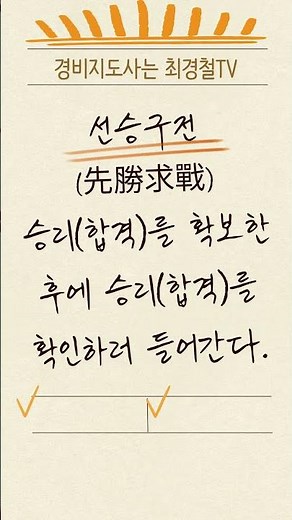 경비지도사는 최경철TV
선승구전
(先勝求戰)
승리(합격)를 확보한
후에 승리(합격)를
확인하러 들어간다.